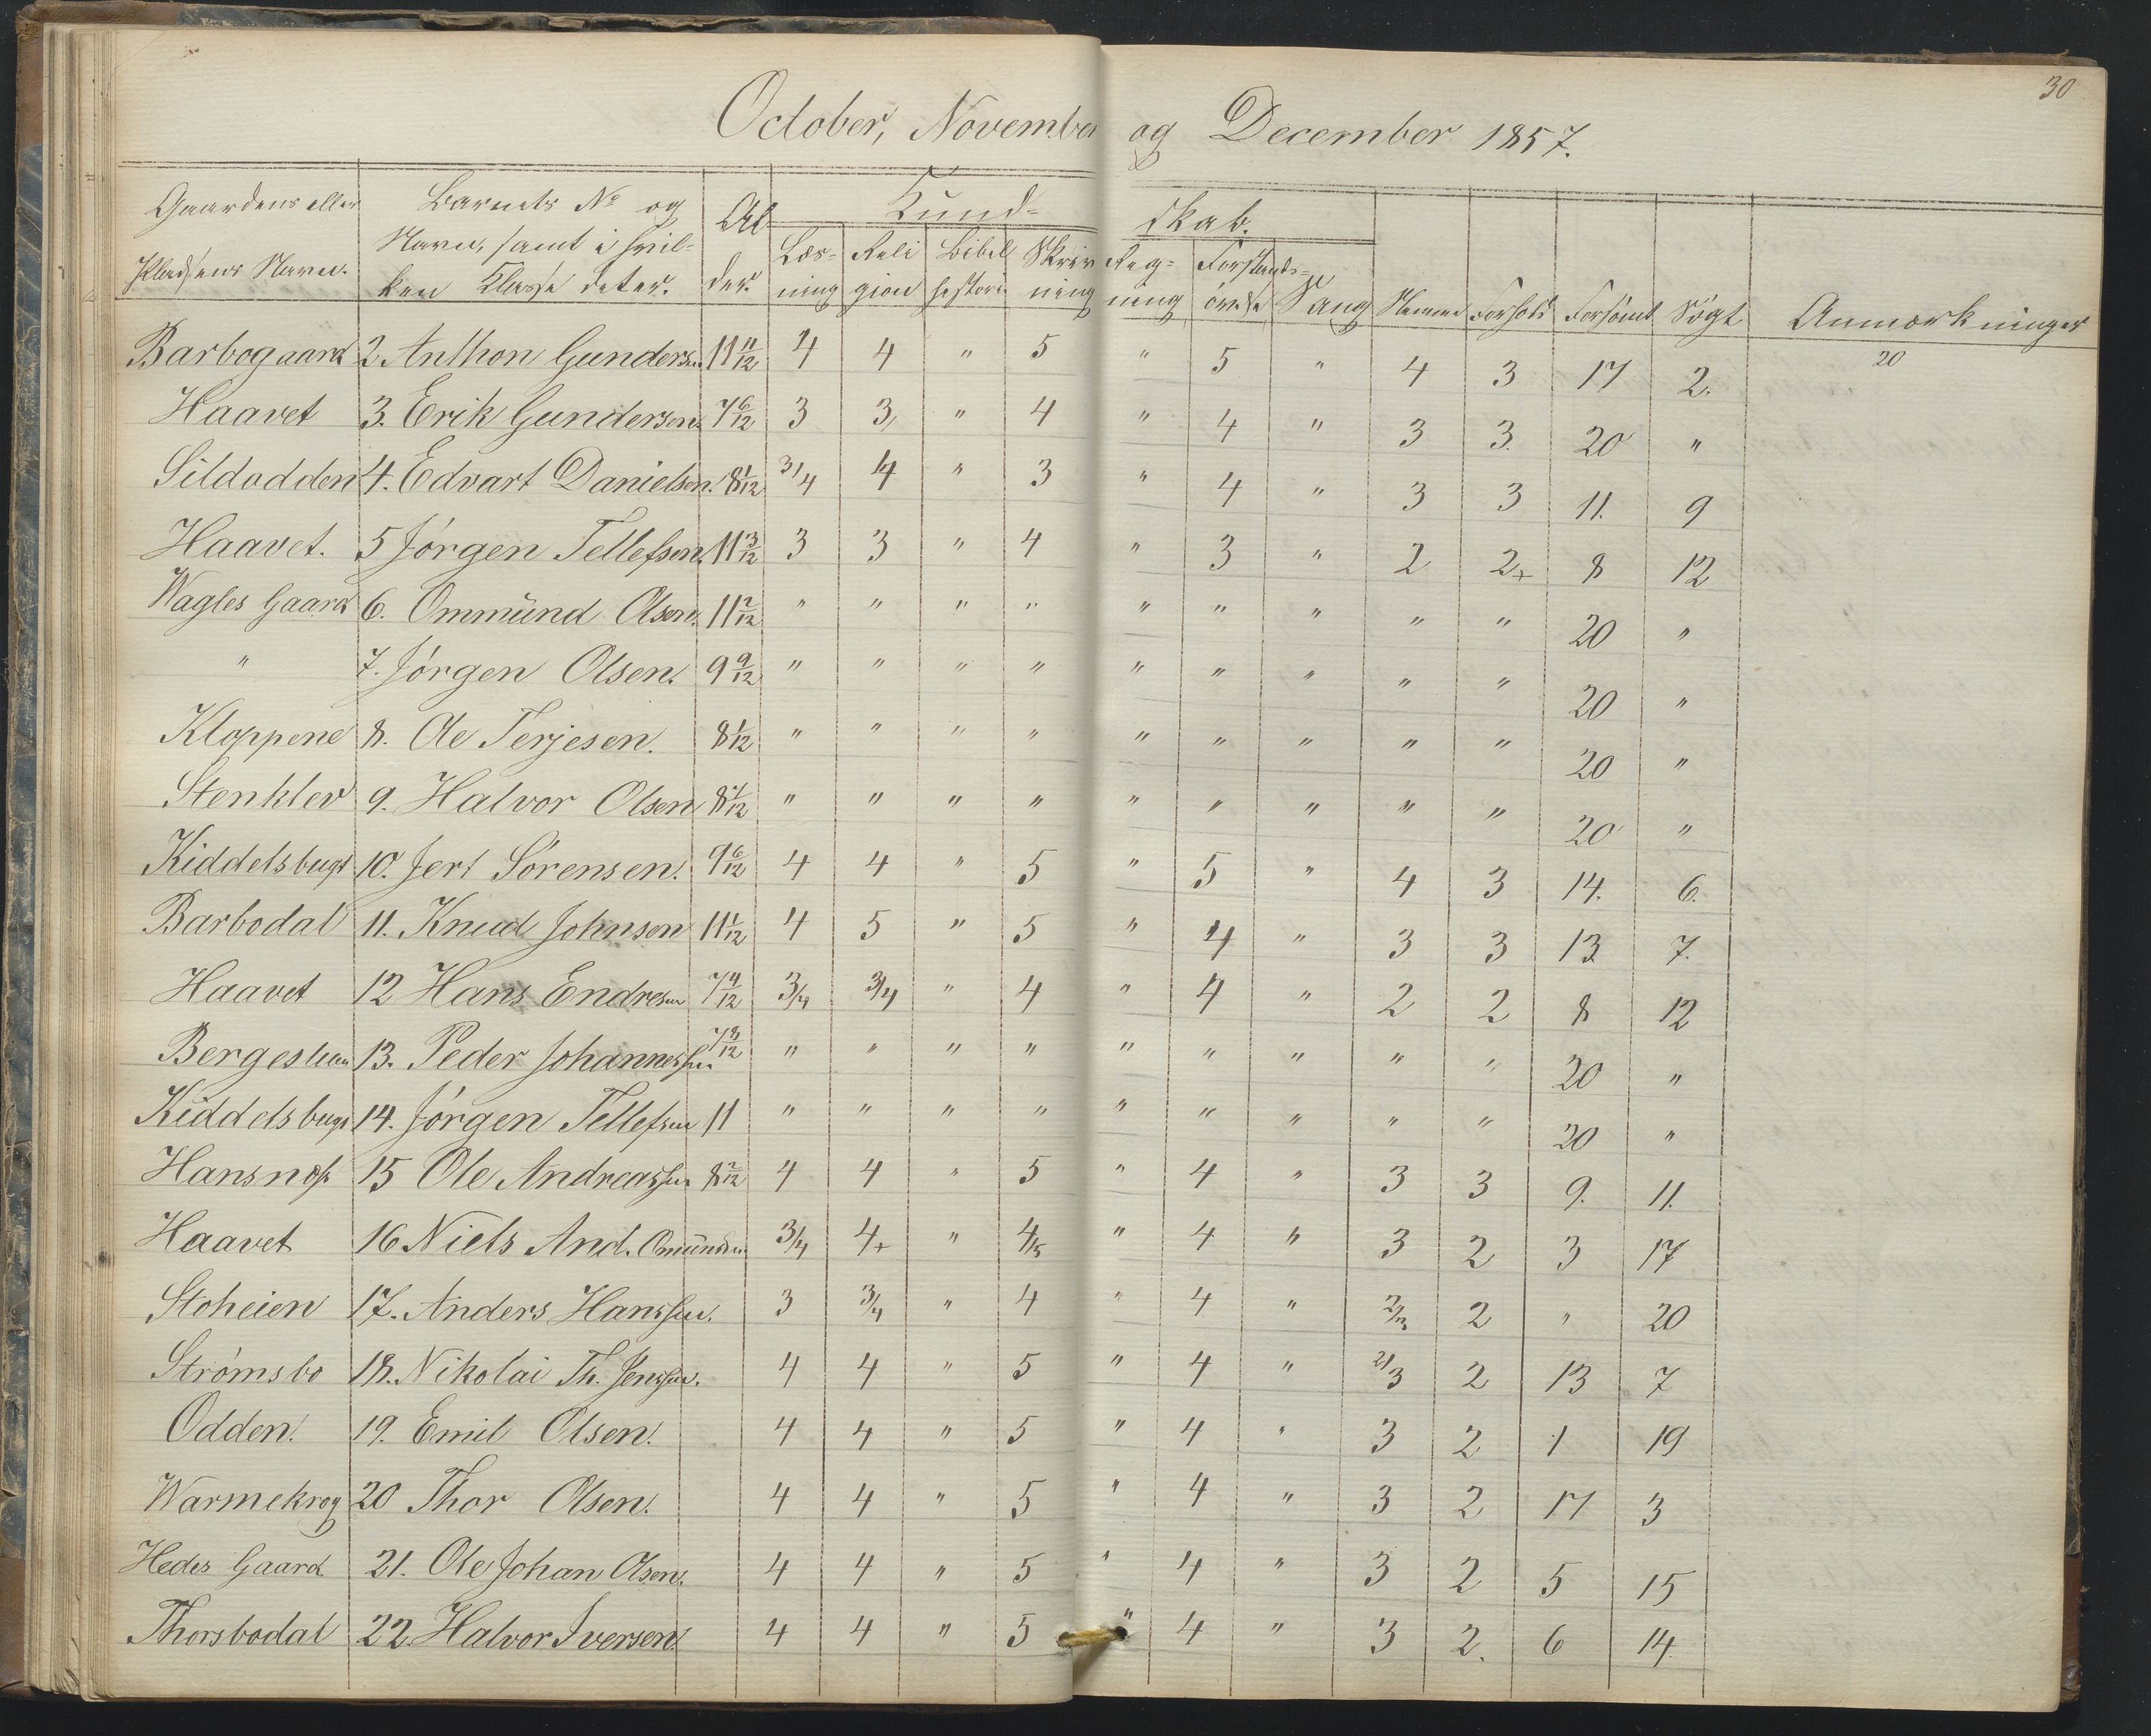 30
October, November og December 1857.
Gaardens eller Pladsens Navn. Barnets No og Navn, samt i hvilken Klasse det er. Alder. Kundskab. Læsning Religion Bibelhestorie Skrivning Regning Forstandsøvelse Sang Nemme Forhold Forsömt Sögt Anmærkninger
Barbogaard 2 Anthon Gundersen 11 11/12 4 4 " 5 " 5 " 4 3 17 2. 20
Haavet 3. Erik Gundersen. 7 6/12 3 3 " 4 " 4 " 3 3. 20 "
Sildodden 4. Edvart Danielsen. 8 1/12 3/4 4 " 3 " 4 " 3 3 11. 9
Haavet. 5 Jörgen Tellefsen. 11 3/12 3 3 " 4 " 3 " 2 2+ 8 12
Wagles Gaard 6. Ommünd Olsen. 11 2/12 " " " " " " " " " 20 "
" 7. Jörgen Olsen. 9 9/12 " " " " " " " " " 20 "
Kloppene 8. Ole Terjesen. 8 1/12 " " " " " " " " " 20 "
Stenklev 9. Halvor Olsen 8 /12 " " " " " " " " " 20 "
Kiddelsbugt 10. Jert Sörensen. 9 6/12 4 4 " 5 " 5 " 4 3 14. 6.
Barbodal 11. Knud Johnsen 11 1/12 4 5 " 5 " 4 " 3 3 13 7.
Haavet 12 Hans Endresen 7 4/12 3/4 3/4 " 4 " 4 " 2 2 8 12
13. Peder Johannessen. 7 8/12 " " " " " " " " " 20 "
Kiddelsbugt 14. Jörgen Tellefsen 11 " " " " " " " " " 20 "
Hansnæs 15 Ole Andreassen 8 2/12 4 4 " 5 " 4 " 3 3 9. 11.
Haavet 16 Niels And. Omündsen. 3/4 4+ " 4/5 " 4 " 3 2 3 17
Stoheien 17. Anders Hanssen. 3 3/4 " 4 " 4 " 2/3 2 " 20
Strömsbo 18. Nikolai Th. Jenssen. 4 4 " 5 " 4 " 2/3 2 13 7
Odden. 19. Emil Olsen. 4 4 " 5 " 4 " 3 2 1 19
Warmekrog 20 Thor Olsen. 4 4 " 5 " 4 " 3 2 17 3
Hedes Gaard 21. Ole Johan Olsen. 4 4 " 5 " 4 " 3 2 5 15
Thorsbodal 22. Halvor Iversen. 4 4 " 5 " 4 " 3 2. 6 14.